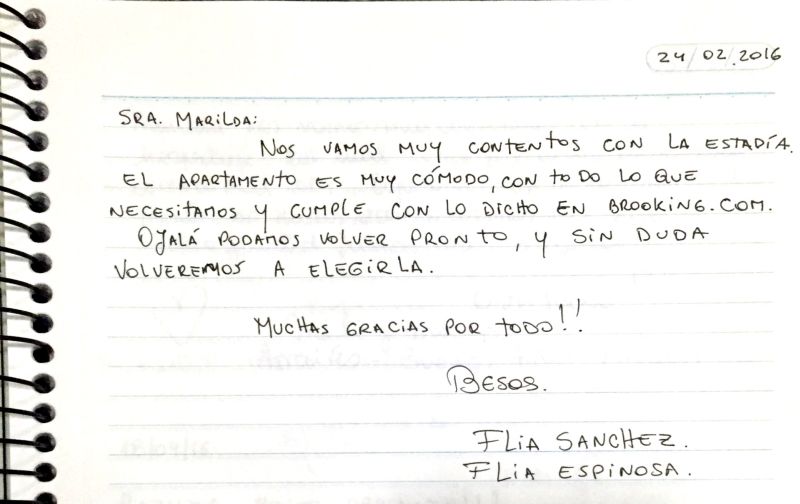 24/02/2016
SRA. MARILDA:
NOS VAMOS MUY CONTENTOS CON LA ESTADÍA.
EL APARTAMENTO ES MUY CÓMODO, CON TODO LO QUE
NECESITAMOS Y CUMPLE CON LO DICHO EN BROOKING.COM.
OJALÁ PODAMOS VOLVER PRONTO, Y SIN DUDA
VOLVEREMOS A ELEGIRLA.
MUCHAS GRACIAS POR TODO!!
BESOS.
FLIA SANCHEZ.
FLIA ESPINOSA.